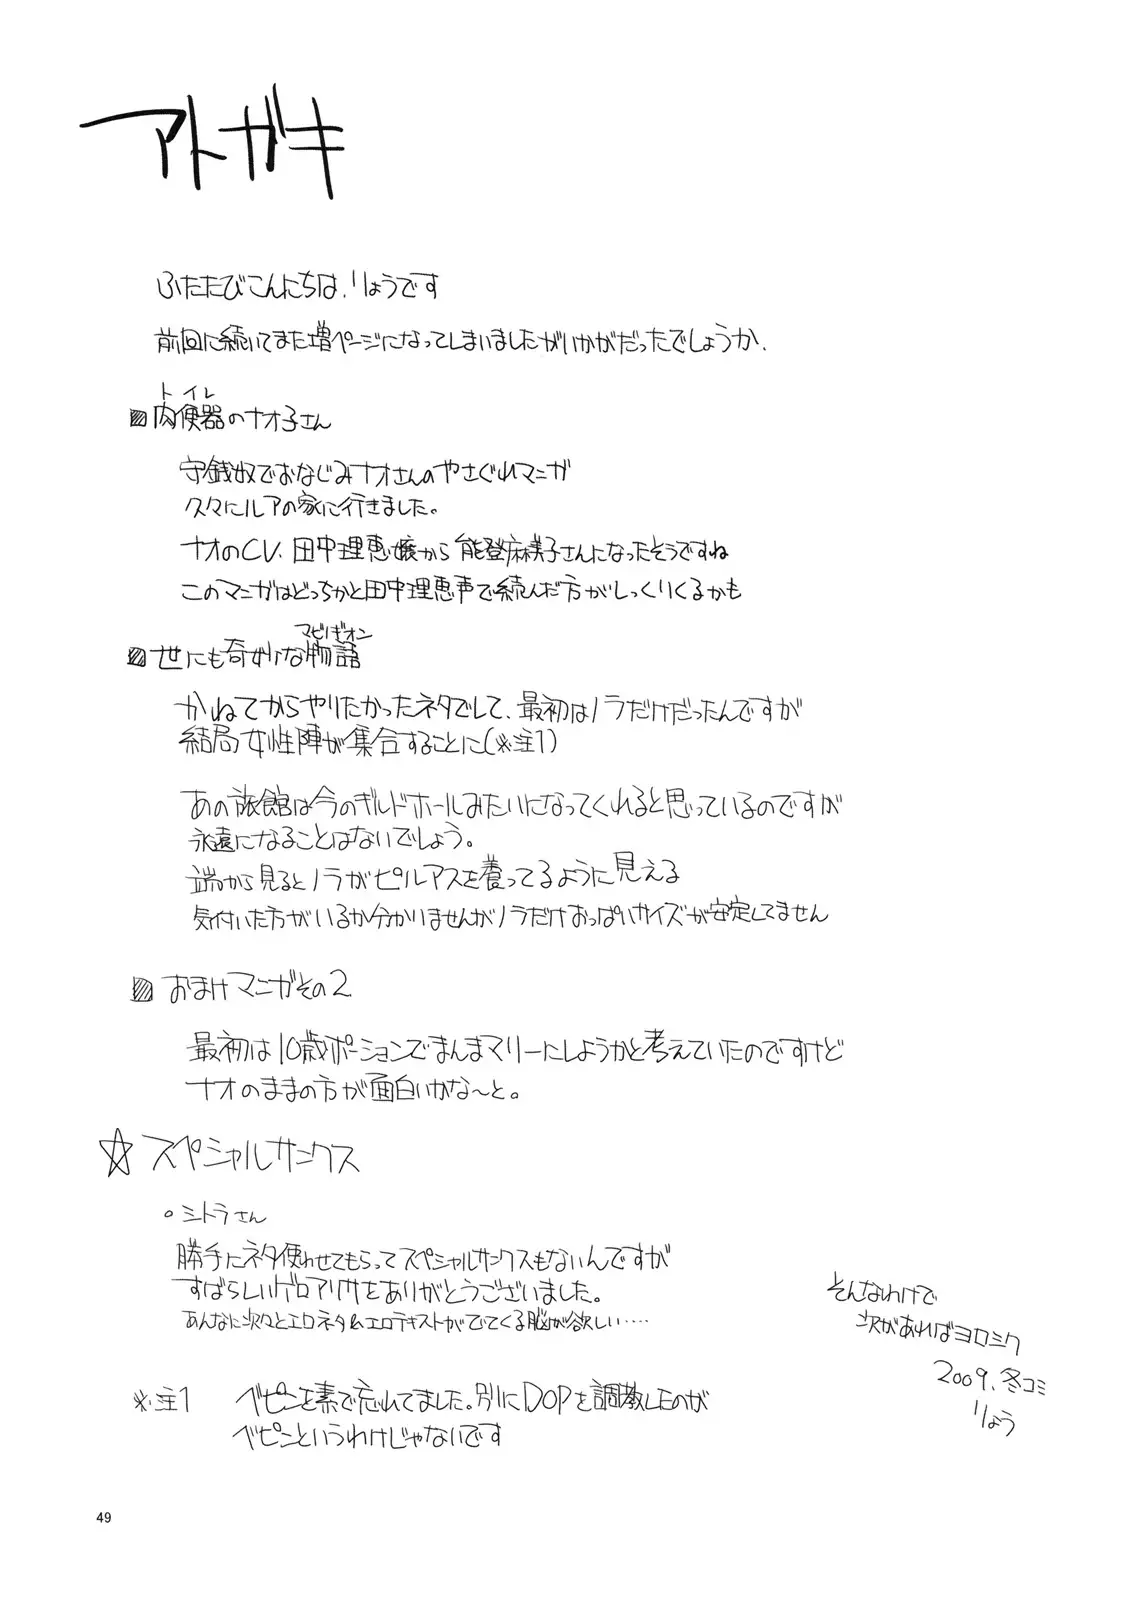 アトガキ
ふたたびこんにちは、りょうです
前回に続いてまた増ページになってしまいましたがいかがだったでしょうか、
トイレ
肉便器のナオ子さん
守銭奴でおなじみナオさんのやさぐれマンガ
久々にルアの家に行きました。
ナオのCV、田中理恵嬢から能登麻美子さんになったそうですね
このマンガはどっちかと田中理恵声で読んだ方がしっくりくるかも
マビノギオン
世にも奇妙な物語
かねてからやりたかったネタでして、最初はノラだけだったんですが
結局女性陣が集合することに(※注1)
あの旅館は今のギルドホールみたいになってくれると思っているのですが
永遠になることはないでしょう。
端から見るとノラがピルアスを養ってるように見える
気付いた方がいるか分かりませんがノラだけおっぱいサイズが安定してません
おまけマンガその2
最初は10歳ポーションでまんまマリーにしようかと考えていたのですけど
ナオのままの方が面白いかな〜と。
☆スペシャルサンクス
○ミトラさん
勝手にネタ使わせてもらってスペシャルサンクスもないんですが
すばらしいゲロアリサをありがとうございました。
あんなに次々とエロネタ&エロテキストがでてくる脳が欲しい……
※注1 ベピンを素で忘れてました。別にDOPを調教したのが
ベピンというわけじゃないです
そんなわけで
次があればヨロシク
2009、冬コミ
りょう
49